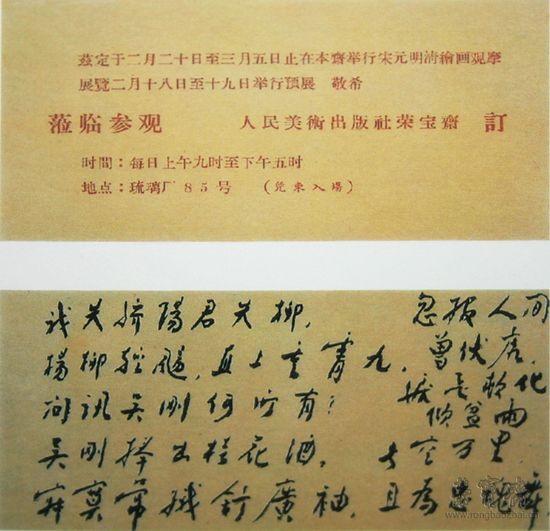 兹定于二月二十日至三月五日止在本齋举行宋元明清繪画观摩
展覽二月十八日至十九日举行預展 敬希
蒞临参观 人民美術出版社荣宝齋 訂
时間：每日上午九时至下午五时
地点：琉璃厂85号 （凭柬入場）
我失娇陽君失柳，
楊柳輕颺，直上重霄九，
问訊吴剛何所有？
吴剛捧出桂花酒，
寂寞常娥舒廣袖，
长空万里
且為忠魂舞
忽报人间
曾伏虎，
泪飛頓化
傾盆雨
www.rongbaozhai.cn